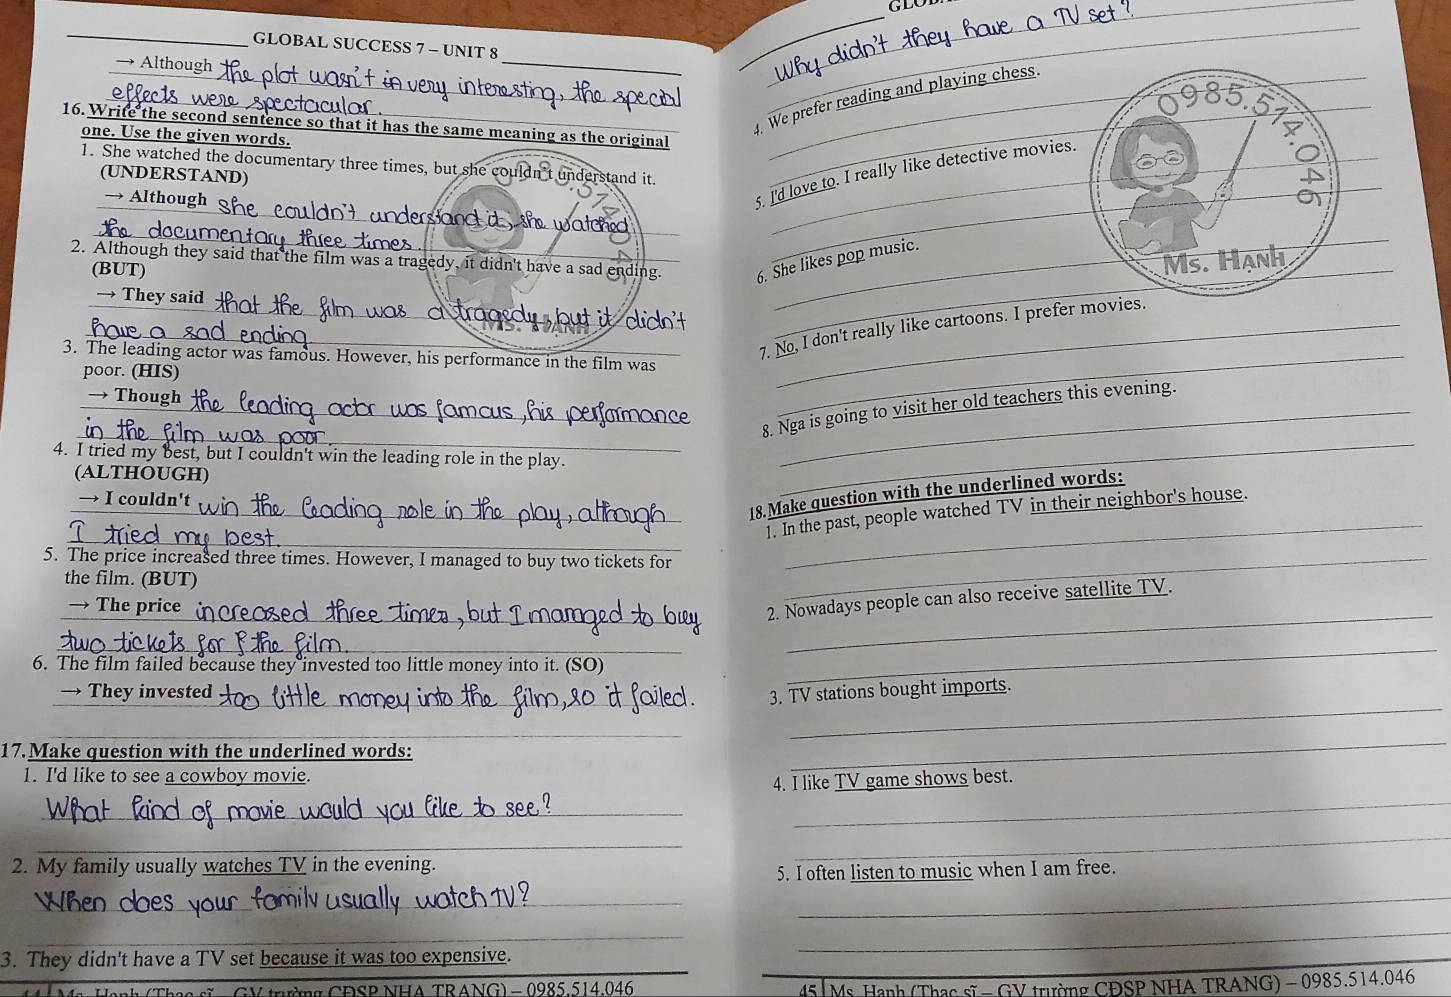 GLOBAL SUCCESS 7 – UNIT 8
→ Although the plot wasn't in very interesting, the special
effects were spectacular.
16. Write the second sentence so that it has the same meaning as the original
one. Use the given words.
1. She watched the documentary three times, but she couldn't understand it.
(UNDERSTAND)
→ Although she couldn't understand it, she watched
the documentary three times.
2. Although they said that the film was a tragedy, it didn't have a sad ending.
(BUT)
→ They said that the film was a tragedy, but it didn't
have a sad ending.
3. The leading actor was famous. However, his performance in the film was
poor. (HIS)
→ Though the leading actor was famous, his performance
in the film was poor.
4. I tried my best, but I couldn't win the leading role in the play.
(ALTHOUGH)
→ I couldn't win the leading role in the play, although
I tried my best.
5. The price increased three times. However, I managed to buy two tickets for
the film. (BUT)
→ The price increased three times, but I managed to buy
two tickets for the film.
6. The film failed because they invested too little money into it. (SO)
→ They invested too little money into the film, so it failed.
17. Make question with the underlined words:
1. I'd like to see a cowboy movie.
What kind of movie would you like to see?
2. My family usually watches TV in the evening.
When does your family usually watch TV?
3. They didn't have a TV set because it was too expensive.
Ms. Hạnh (Thạc sĩ – GV trường CĐSP NHA TRANG) – 0985.514.046
Why didn't they have a TV set?
4. We prefer reading and playing chess.
5. I'd love to. I really like detective movies.
6. She likes pop music.
7. No, I don't really like cartoons. I prefer movies.
8. Nga is going to visit her old teachers this evening.
18. Make question with the underlined words:
1. In the past, people watched TV in their neighbor's house.
2. Nowadays people can also receive satellite TV.
3. TV stations bought imports.
4. I like TV game shows best.
5. I often listen to music when I am free.
45 | Ms. Hạnh (Thạc sĩ – GV trường CĐSP NHA TRANG) – 0985.514.046
0985.514.046
Ms. HẠNH
0985.514.046
Ms. HẠNH